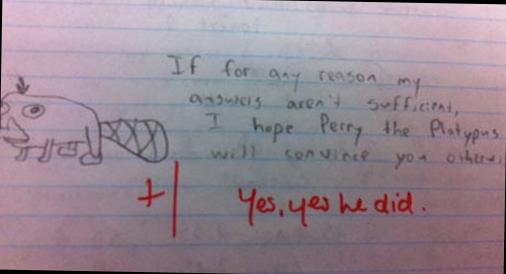 If for any reason my
answers aren't sufficient,
I hope Perry the Platypus
will convince you otherwi
+1 Yes, yes he did.